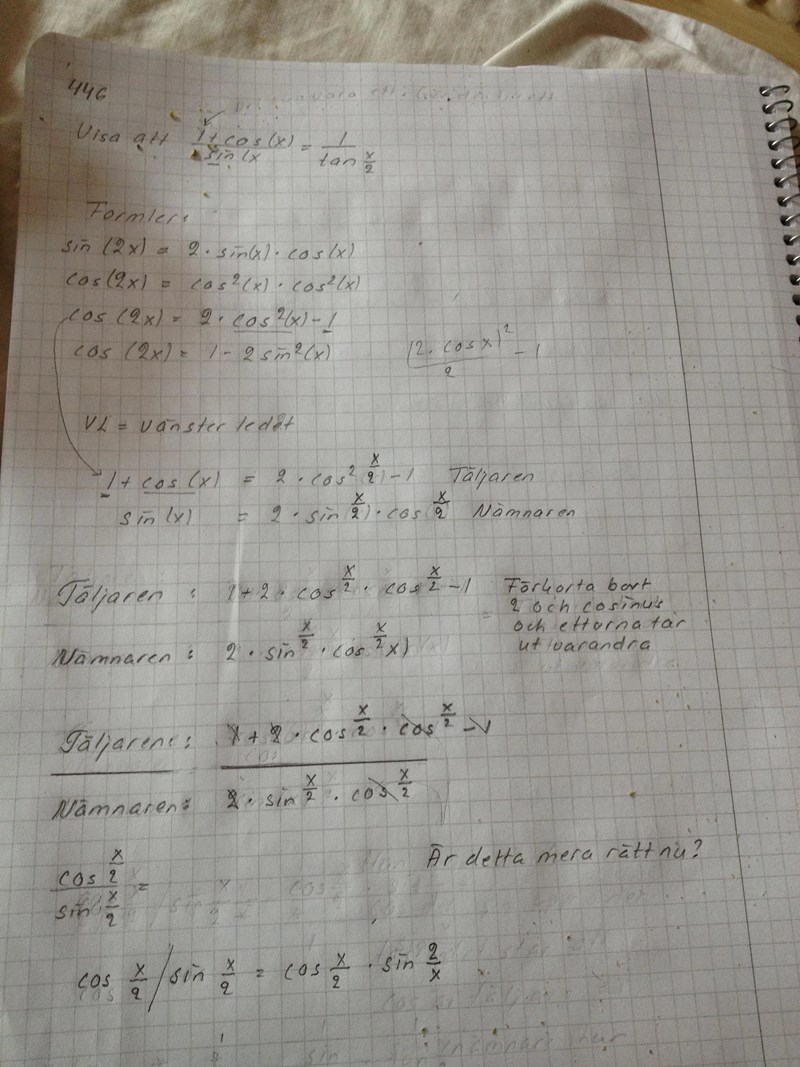 446
Visa att (1+cos(x))/(sin(x) = 1/(tan x/2)
Formler:
sin (2x) = 2 · sin(x) · cos(x)
cos(2x) = cos²(x) · cos²(x)
cos (2x) = 2 · cos²(x) - 1
cos (2x) = 1 - 2 sin²(x)
(2 · cos x)²/2 - 1
VL = vänster ledet
1 + cos (x) = 2 · cos² (x/2) - 1 Täljaren
sin (x) = 2 · sin (x/2) · cos (x/2) Nämnaren
Täljaren : 1 + 2 · cos x/2 · cos x/2 - 1 = Förkorta bort
2 och cosinus
och ettorna tar
ut varandra
Nämnaren : 2 · sin x/2 · cos x/2 x)
Täljaren : 1 + 2 · cos x/2 · cos x/2 - 1
Nämnaren : 2 · sin x/2 · cos x/2
Är detta mera rätt nu?
(cos x/2)/(sin x/2) =
cos x/2 / sin x/2 = cos x/2 · sin 2/x